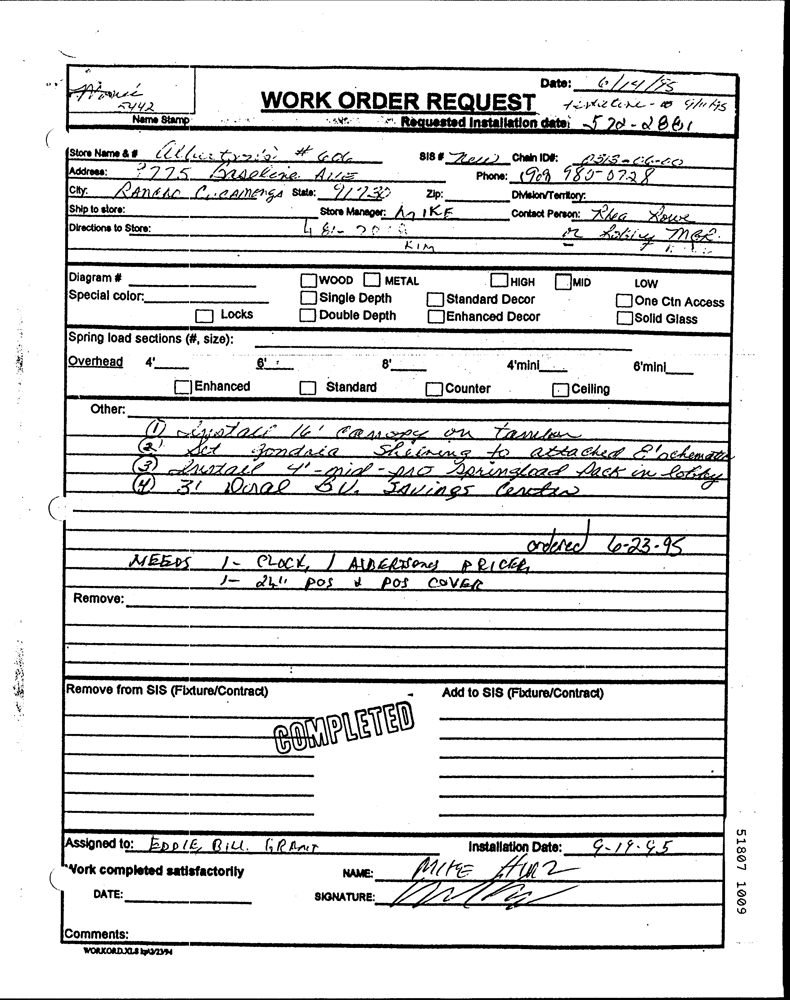 Date: 6/14/95
5442
WORK ORDER REQUEST
Name Stamp
Requested Installation date:
Store Name & #
# 606
SIS # New Chain ID#:
Address: Baseline Ave
Phone: (909 980-0728
City: State: 91730 Zip: Division/Territory:
Ship to store: Store Manager: MIKE Contact Person: Rhea Rowe
Directions to Store:
or MGR.
KIM
Diagram # WOOD METAL HIGH MID LOW
Special color: Single Depth Standard Decor One Ctn Access
Locks Double Depth Enhanced Decor Solid Glass
Spring load sections (#, size):
Overhead 4' 6' 8' 4'mini 6'mini
Enhanced Standard Counter Ceiling
Other:
① Install 16' canopy on
② Set gondola to attached
③ Install 4'-mid-pro springload Pack in lobby
④ 3' Doral B.V. Savings Center
ordered 6-23-95
NEEDS 1- CLOCK, 1 ALBERTSONS PRICER,
1- 24" POS & POS COVER
Remove:
Remove from SIS (Fixture/Contract) Add to SIS (Fixture/Contract)
COMPLETED
Assigned to: EDDIE, BILL, GRANT Installation Date: 9-19-95
Work completed satisfactorily NAME: MIKE
DATE: SIGNATURE:
Comments:
WORKORD.XLS
51807 1009